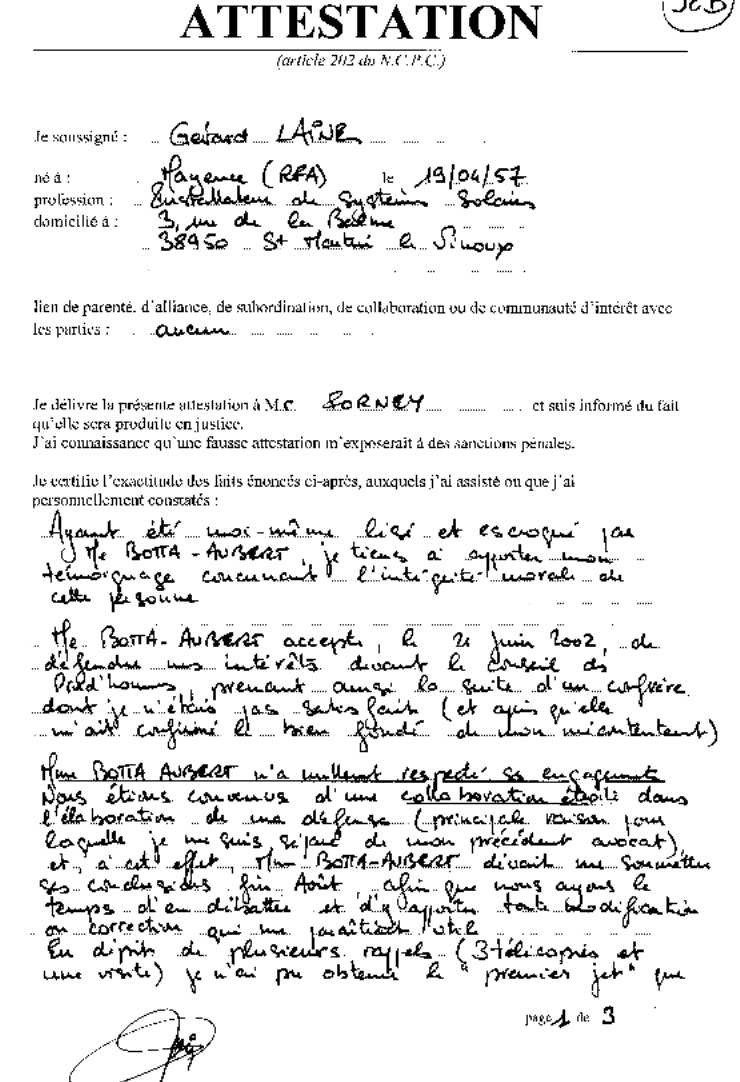 JCB
ATTESTATION
(article 202 du N.C.P.C.)
Je soussigné : Gérard LAÎNE
né à : Mayence (RFA) le 19/04/57
profession : Installateur de Systèmes Solaires
domicilié à : 3, rue de la Balme
38950 St Martin le Vinoux
lien de parenté, d'alliance, de subordination, de collaboration ou de communauté d'intérêt avec
les parties : aucun
Je délivre la présente attestation à M.C. FORNEY et suis informé du fait
qu'elle sera produite en justice.
J'ai connaissance qu'une fausse attestation m'exposerait à des sanctions pénales.
Je certifie l'exactitude des faits énoncés ci-après, auxquels j'ai assisté ou que j'ai
personnellement constatés :
Ayant été moi-même lésé et escroqué par
Me BOTTA-AUBERT, je tiens à apporter mon
témoignage concernant l'intégrité morale de
cette personne
Me BOTTA-AUBERT accepte, le 21 juin 2002, de
défendre mes intérêts devant le Conseil des
Prud'hommes, prenant ainsi la suite d'un confrère
dont je n'étais pas satisfait (et après qu'elle
m'ait confirmé le bien fondé de mon mécontentement)
Mme BOTTA AUBERT n'a nullement respecté ses engagements
Nous étions convenus d'une collaboration étroite dans
l'élaboration de ma défense (principale raison pour
laquelle je me suis séparé de mon précédent avocat),
et, à cet effet, Mme BOTTA-AUBERT devait me soumettre
ses conclusions fin Août, afin que nous ayons le
temps d'en débattre et d'y apporter toute modification
ou correction qui me paraîtrait utile
En dépit de plusieurs rappels (3 télécopies et
une visite) je n'ai pu obtenir le "premier jet" que
page 1 de 3